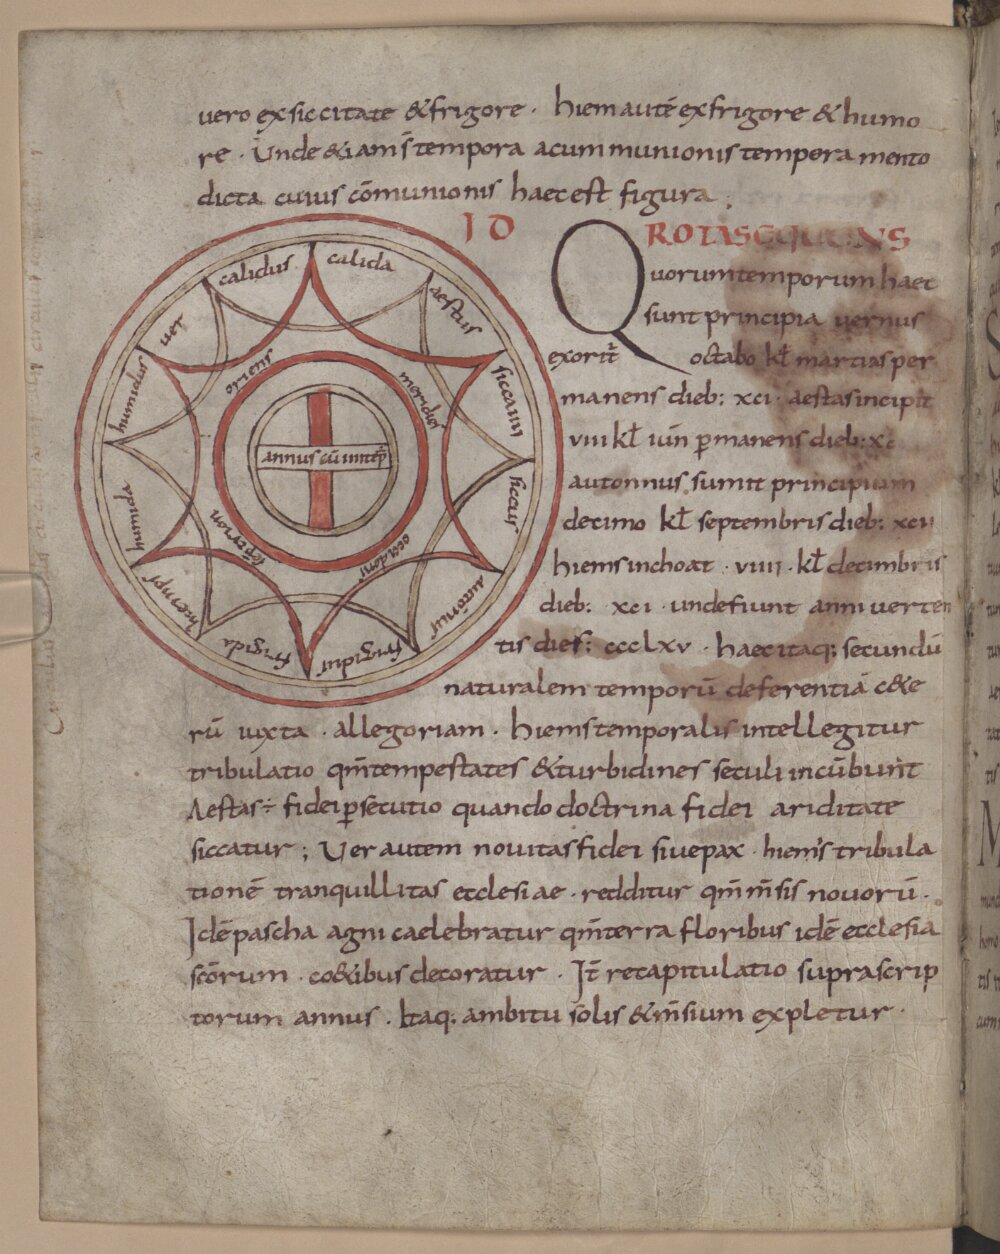 vero ex siccitate & frigore · hiem autē ex frigore & humo
re · Unde & iam s̄ tempora a cummunionis temperamento
dicta cuius cōmunionis haec est figura ;
calidus calida
aestus
siccam
siccus
autūnus
frigidus
frigida
hiemps
humida
humidus
uer
oriens
meridies
occidens
annus
I D
ROTA SEQUENS
Quorum temporum haec
sunt principia vernus
exorit̄ octabo kł martias per
manens dieb: xci · aestas incipit
viiii kł iun̄ p̱manens dieb:
autonnus sumit principium
decimo kł septembris dieb: xcii
hiems inchoat · viiii · kł decimbris
dieb: xci · unde fiunt anni verten
tis dies: ccclxv · haec itaq; secundū
naturalem temporū deferentiā c&e
rū iuxta · allegoriam · hiems temporalis intellegitur
tribulatio qn̄ tempestates & turbidines seculi incūbunt
Aestas ÷ fidei p̱secutio quando doctrina fidei ariditate
siccatur ; Ver autem novitas fidei sive pax · hiem̄s tribula
tionē tranquillitas ecclesiae · redditur qn̄ m̄sis novorū ·
Idē pascha agni caelebratur qn̄ terra floribus idē ecclesia
sc̄orum · co&ibus decoratur · It̄ recapitulatio suprascrip
torum annus · Itaq; ambitu solis & m̄sium expletur ·